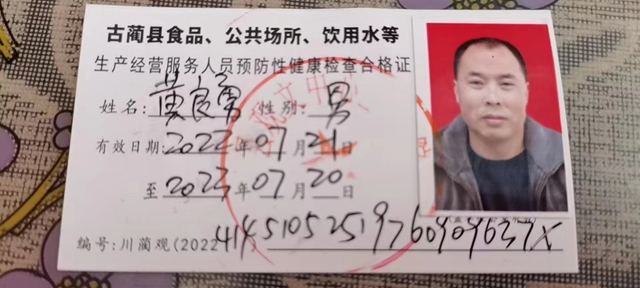 古蔺县食品、公共场所、饮用水等
生产经营服务人员预防性健康检查合格证
姓名: 黄良勇 性别: 男
有效日期: 2022年07月21日
至 2023年07月20日
编号:川蔺观(2022 414 51052519760909637X